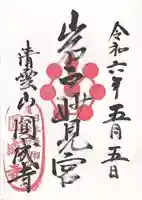 令和六年五月五日
岩戸妙見宮
清雲山圓成寺